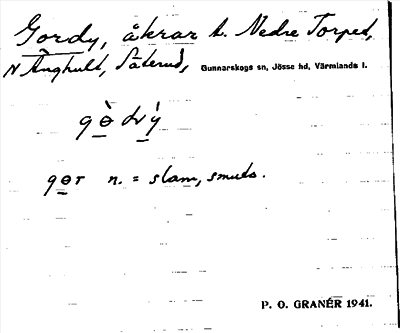 Gordy, åkrar t. Nedre Torped,
N Änghult, Säterud, Gunnarskogs sn, Jösse hd, Värmlands l.
gòdvý
gɵr n. = slam, smuds.
P. O. GRANÉR 1941.